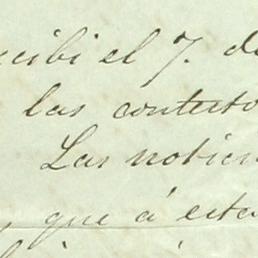 recibi el 7. de
las contesto
Las noticia
, que á esta